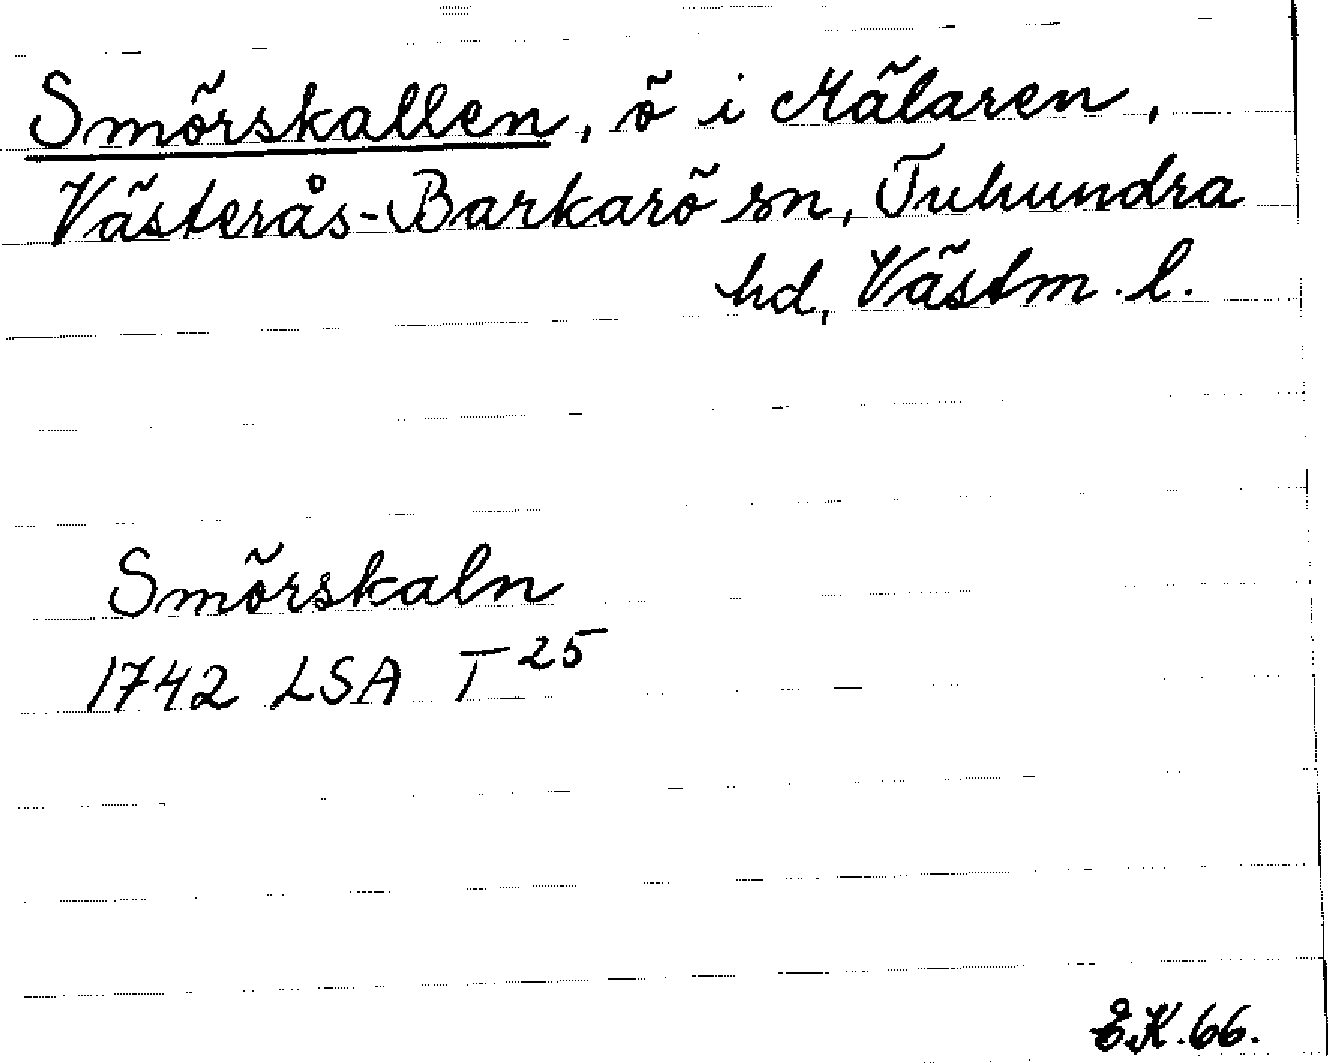 Smörskallen, ö i Mälaren,
Västerås-Barkarö sn, Tuhundra
hd, Västm. l.
Smörskaln
1742 LSA T 25
E.K. 66.